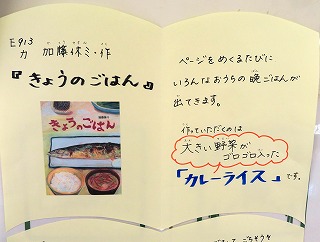 E913
カ 加藤休ミ・作
『きょうのごはん』
きょうのごはん
ページをめくるたびに
いろんなおうちの晩ごはんが
出てきます。
作っていただくのは
大きい野菜が
ゴロゴロ入った
「カレーライス」です。